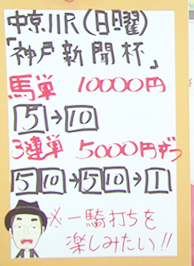 中京11R(日曜)
「神戸新聞杯」
馬単 10000円
5→10
3連単 5000円ずつ
5 10→5 10→1
※一騎打ちを
楽しみたい!!